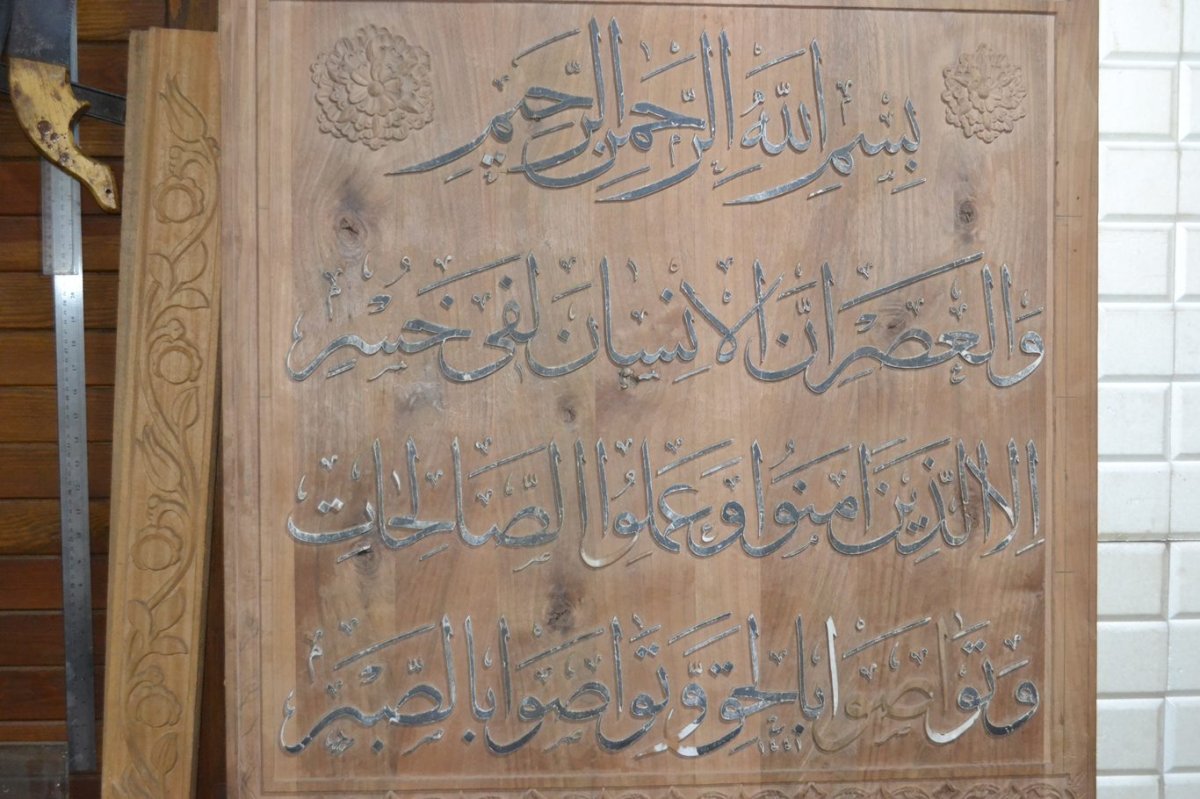 بِسْمِ اللّٰهِ الرَّحْمٰنِ الرَّحِيمِ
وَالْعَصْرِ اِنَّ الْاِنْسَانَ لَفِى خُسْرٍ
اِلَّا الَّذِينَ اٰمَنُوا وَعَمِلُوا الصَّالِحَاتِ
وَتَوَاصَوْا بِالْحَقِّ وَتَوَاصَوْا بِالصَّبْرِ